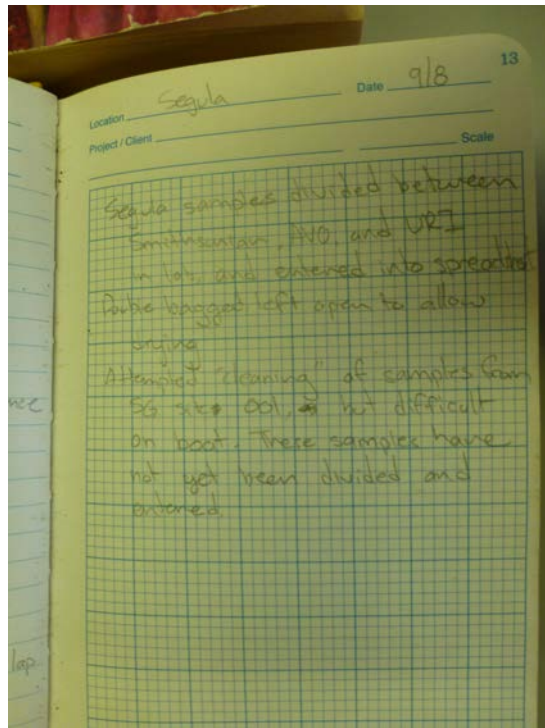 13
Location Segula Date 9/8
Project / Client Scale
Segula samples divided between
Smithsonian, AVO, and URI
in lab, and entered into spreadsheet.
Double bagged left open to allow
drying
Attempted "cleaning" of samples from
SG site 001, but difficult
on boat. These samples have
not yet been divided and
entered.
lap